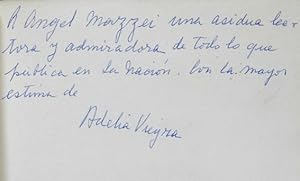 A Angel Mazzei una asidua lec-
tora y admiradora de todo lo que
publica en La Nación. Con la mayor
estima de
Adelia Vieyra